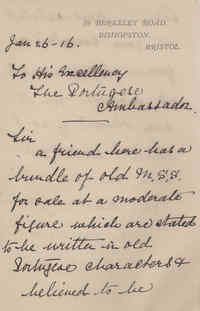 19 BERKELEY ROAD
BISHOPSTON,
BRISTOL.
Jan 26-16.
To His Excellency
The Portugese
Ambassador.
Sir
a friend here has a
bundle of old M.S.S.
for sale at a moderate
figure which are stated
to be written in old
Portugese characters &
believed to be